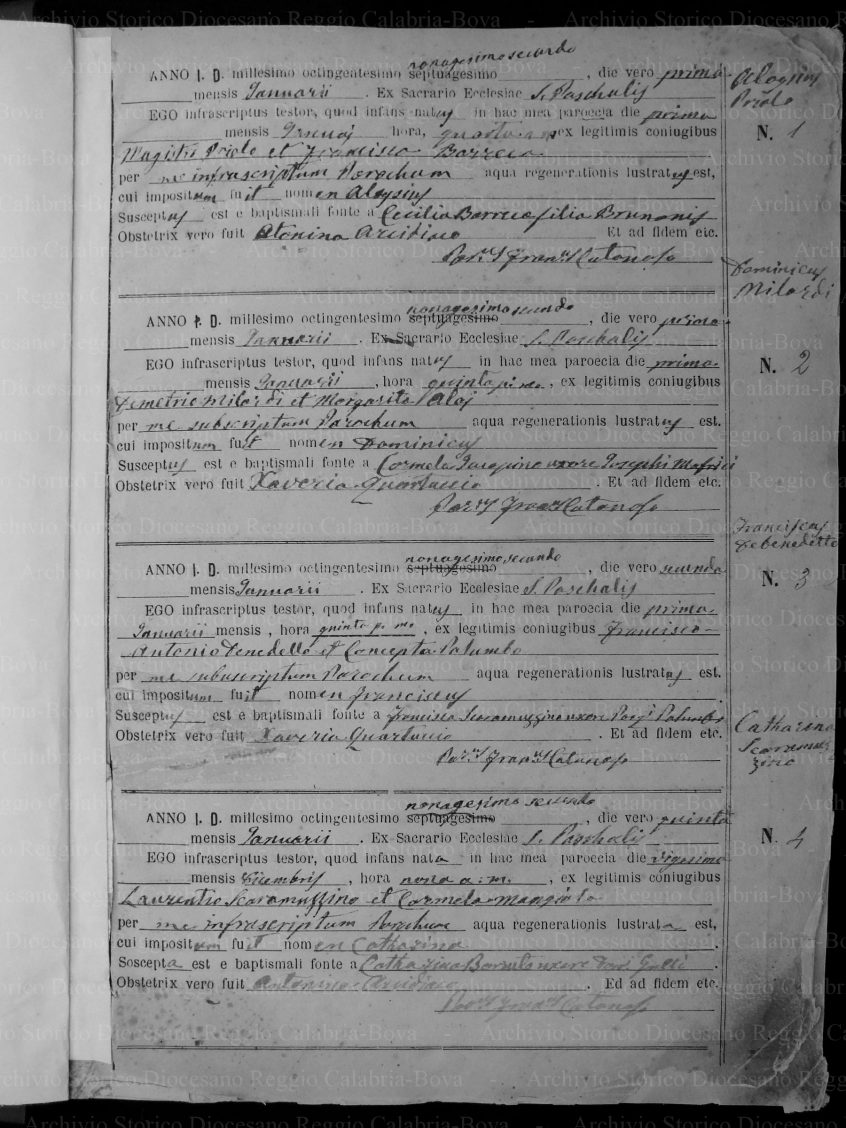 Archivio Storico Diocesano Reggio Calabria-Bova - Archivio Storico Diocesano Reggio Calabria-Bova
nonagesimo secundo
ANNO I. D. millesimo octingentesimo septuagesimo, die vero prima
mensis Januarii. Ex Sacrario Ecclesiae S. Paschalis
EGO infrascriptus testor, quod infans natus in hac mea paroecia die prima
mensis hora, ex legitimis coniugibus
et Francisca Barreca
per me infrascriptum Parochum aqua regenerationis lustratus est,
cui impositum fuit nomen Aloysius
Susceptus est e baptismali fonte a Cecilia Barreca filia Brunonis
Obstetrix vero fuit Et ad fidem etc.
Catanoso
Aloysius
N. 1
nonagesimo secundo
ANNO I. D. millesimo octingentesimo septuagesimo, die vero prima
mensis Januarii. Ex Sacrario Ecclesiae S. Paschalis
EGO infrascriptus testor, quod infans natus in hac mea paroecia die prima
mensis Januarii, hora quinta, ex legitimis coniugibus
Demetrio Milardi et Margarita Aloj
per me subscriptum Parochum aqua regenerationis lustratus est.
cui impositum fuit nomen Dominicus
Susceptus est e baptismali fonte a Carmela uxore Josephi
Obstetrix vero fuit Xaveria Quartuccio. Et ad fidem etc.
Catanoso
Dominicus
Milardi
N. 2
nonagesimo secundo
ANNO I. D. millesimo octingentesimo septuagesimo, die vero secunda
mensis Januarii. Ex Sacrario Ecclesiae S. Paschalis
EGO infrascriptus testor, quod infans natus in hac mea paroecia die prima
Januarii mensis, hora quinta, ex legitimis coniugibus Francisco
Antonio et Concepta Palumbo
per me subscriptum Parochum aqua regenerationis lustratus est.
cui impositum fuit nomen Franciscus
Susceptus est e baptismali fonte a Francisca Scaramuzzino uxore Palumbo
Obstetrix vero fuit Xaveria Quartuccio. Et ad fidem etc.
Catanoso
Franciscus
Debenedetto
N. 3
nonagesimo secundo
ANNO I. D. millesimo octingentesimo septuagesimo, die vero quinta
mensis Januarii. Ex Sacrario Ecclesiae S. Paschalis
EGO infrascriptus testor, quod infans nata in hac mea paroecia die vigesima
mensis Decembris, hora nona a. m., ex legitimis coniugibus
Laurentio Scaramuzzino et Carmela
per me infrascriptum Parochum aqua regenerationis lustrata est,
cui impositum fuit nomen Catharina.
Soscepta est e baptismali fonte a Catharina uxore
Obstetrix vero fuit. Ed ad fidem etc.
Catanoso
Catharina
Scaramuz
zino
N. 4